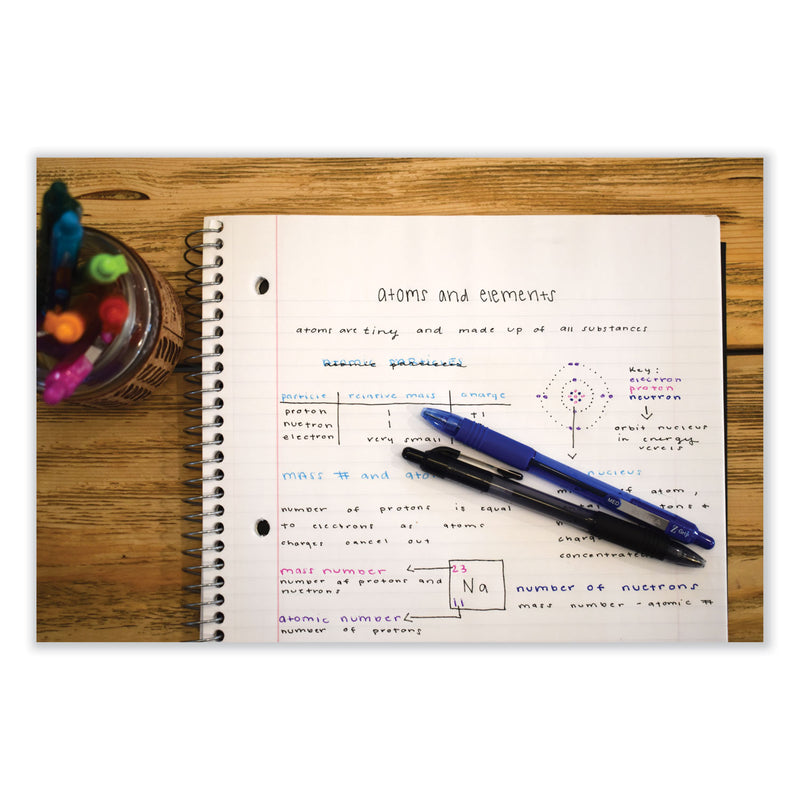 atoms and elements
atoms are tiny and made up of all substances
atomic particles
particle relative mass charge
proton 1 +1
nuetron 1
electron very small
Key:
electron
proton
neutron
orbit nucleus
in energy
verels
mass # and
number of protons is equal
to electrons as atoms
charges cancel out
nucleus
of atom,
concentrated
mass number
number of protons and
nuetrons
23
Na
11
atomic number
number of protons
number of nuetrons
mass number - atomic #
MED
Z-Grip